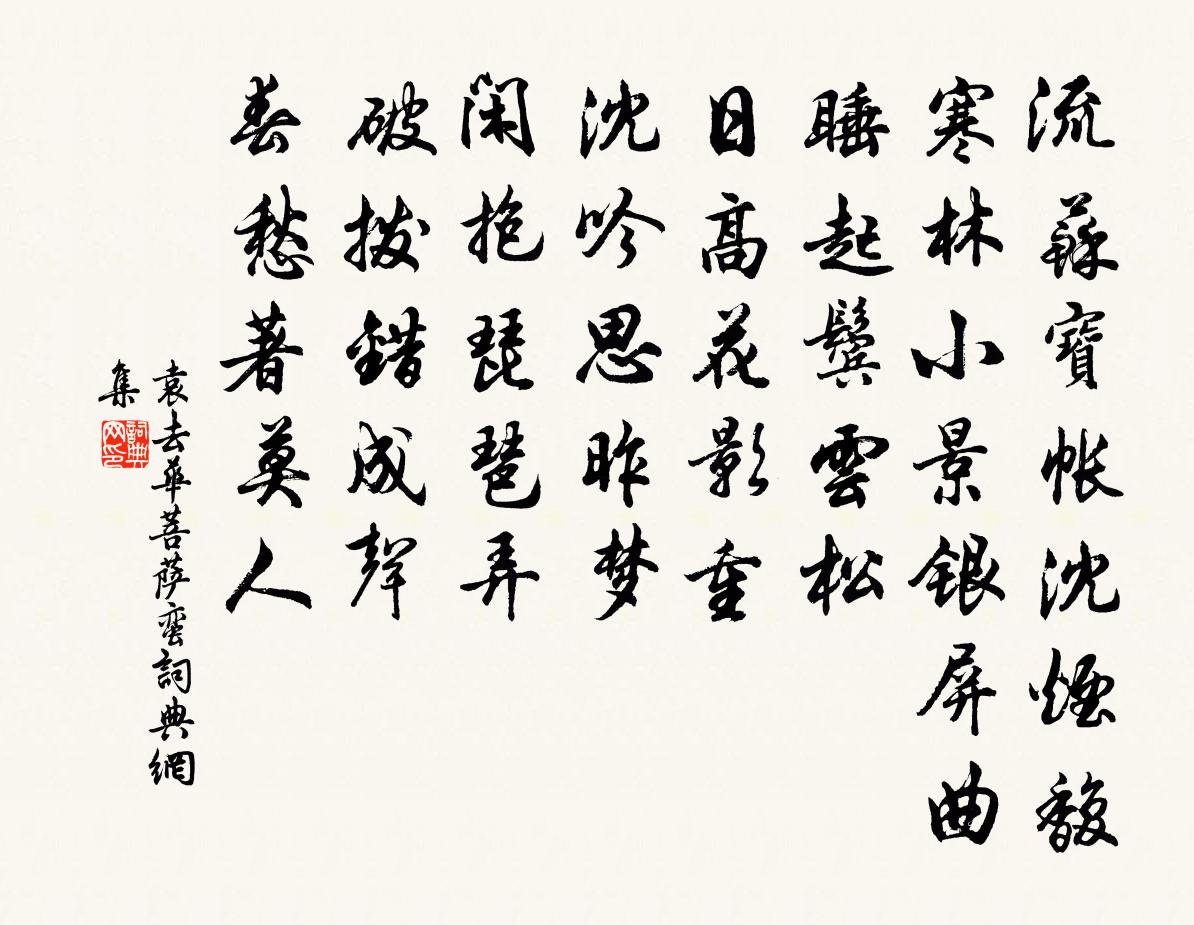 流蘇寶帳沈煙馥
寒林小景銀屏曲
睡起鬓雲松
日高花影重
沈吟思昨梦
閑抱琵琶弄
破拨錯成聲
春愁著莫人
袁去華菩萨蛮詞典網
集
詞典
网印